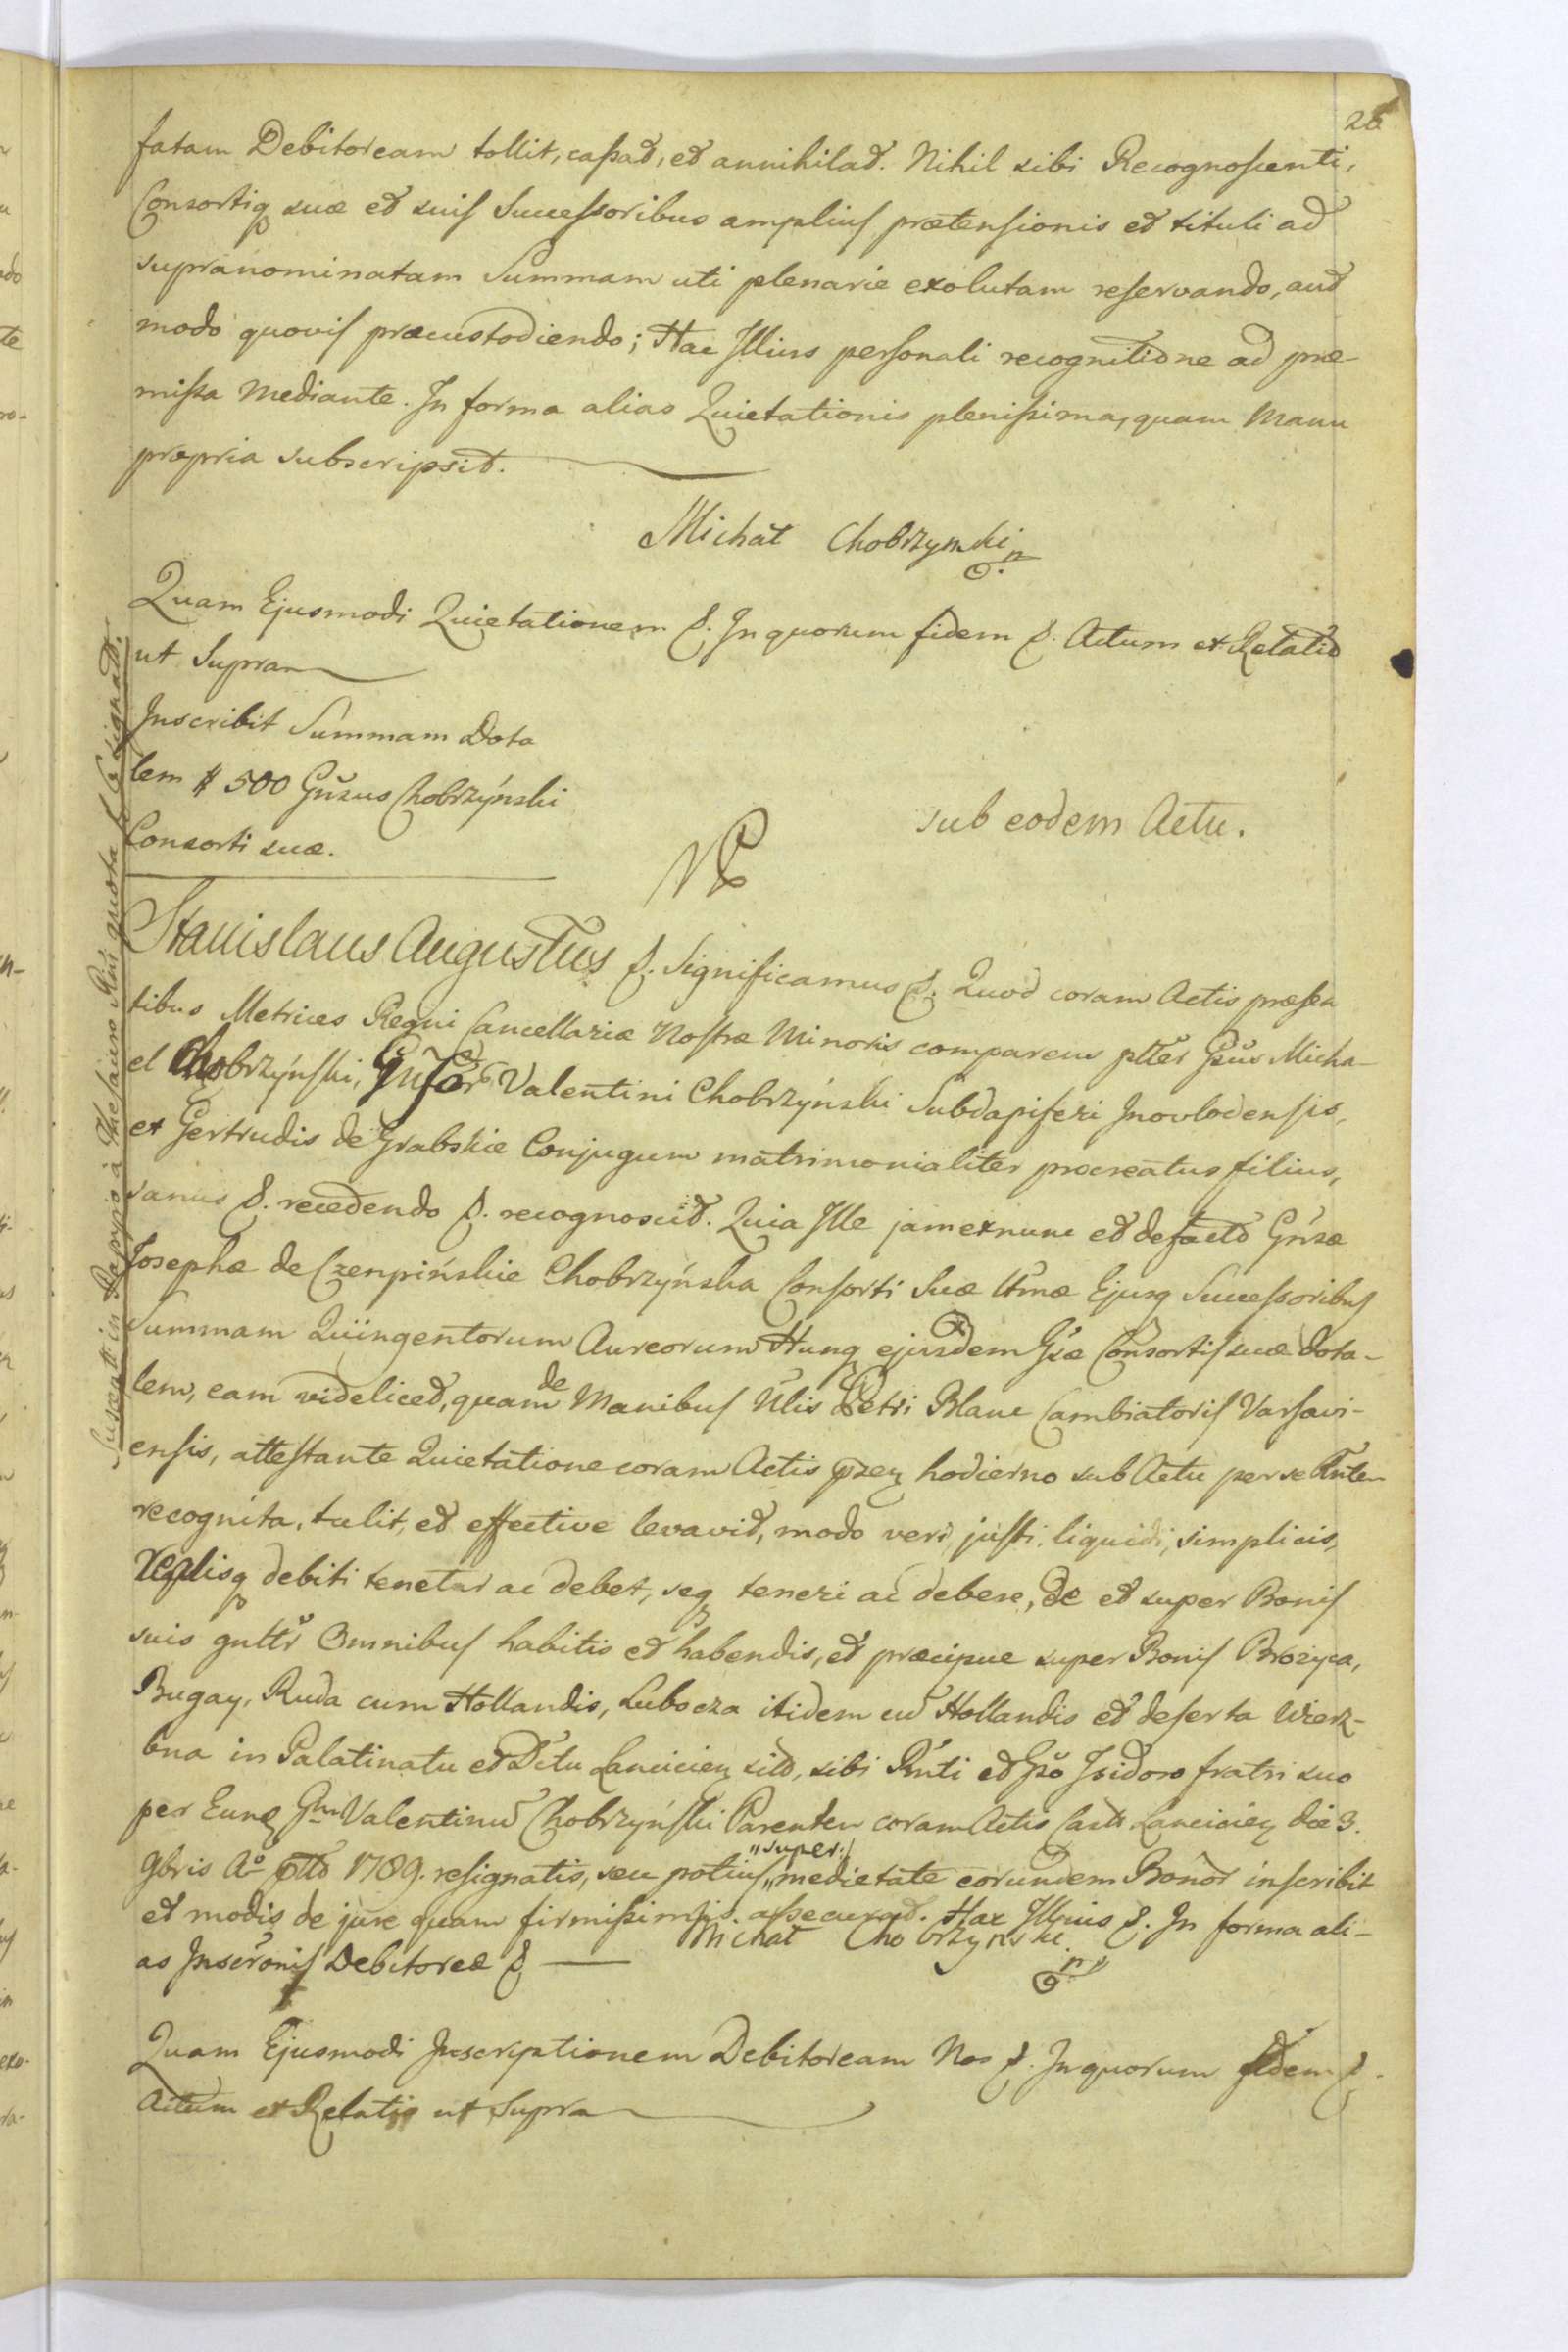 26
fatam Debitoream tollit, cassat, et annihilat. Nihil sibi Recognoscenti,
Consortiq suæ et suis Successoribus amplius prætensionis et tituli ad
supranominatam Summam uti plenarie exolutam reservando, aut
modo quovis præcustodiendo; Hac Illius personali recognitione ad præ-
missa Mediante. In forma alias Quietationis plenissima, quam Manu
propria subscripsit.
Michał Chobrzynski
Quam Ejusmodi Quietationem &. In quorum fidem &. Actum et Relatio
ut Supra
Inscribit Summam Dota
lem # 500 Gnsus Chobrzyński
Consorti suæ.
sub eodem Actu.
Stanislaus Augustus &. Significamus &. Quod coram Actis præsen
tibus Metrices Regni Cancellariæ Nostræ Minoris comparens pltter Gsus Micha-
el Chobrzyński, Valentini Chobrzyński Subdapiferi Inovlodensis,
et Gertrudis de Grabskie Conjugum matrimonialiter procreatus filius,
sanus &. recedendo &. recognoscit. Quia Ille jam exnunc et defacto Gnsæ
Josephæ de Czenpińskie Chobrzyńska Consorti Suæ Ejusq Successoribus
Summam Quingentorum Aureorum Hung ejusdem Gsæ Consortis suæ dota-
lem, eam videlicet, quam de Manibus Petri Blanc Cambiatoris Varsavi-
ensis, attestante Quietatione coram Actis hodierno sub Actu per se
recognita, tulit, et effective levavit, modo veri, justi, liquidi, simplicis,
realisq debiti tenetur ac debet, seq teneri ac debere, de et super Bonis
suis gnltr Omnibus habitis et habendis, et præcipue super Bonis Brozyca,
Bugay, Ruda cum Hollandis, Lubocza itidem cu Hollandis et deserta Wierz-
bna in Palatinatu et Dctu Lancicien sitis, sibi Rnti et Gso Isidoro fratri suo
per Eund Gnm Valentinu Chobrzyński Parentem coram Actis Castr. Lancicien die 3.
9bris Ao 1789. resignatis, seu potius „super„ medietate eorundem Bonor inscribit
et modis de jure quam firmissimis assecurat. Hac Illius &. In forma ali-
as Inscronis Debitoreæ &
Michał Chobrzynski
Quam Ejusmodi Inscriptionem Debitoream Nos &. In quorum fidem &.
Actum et Relatio ut Supra